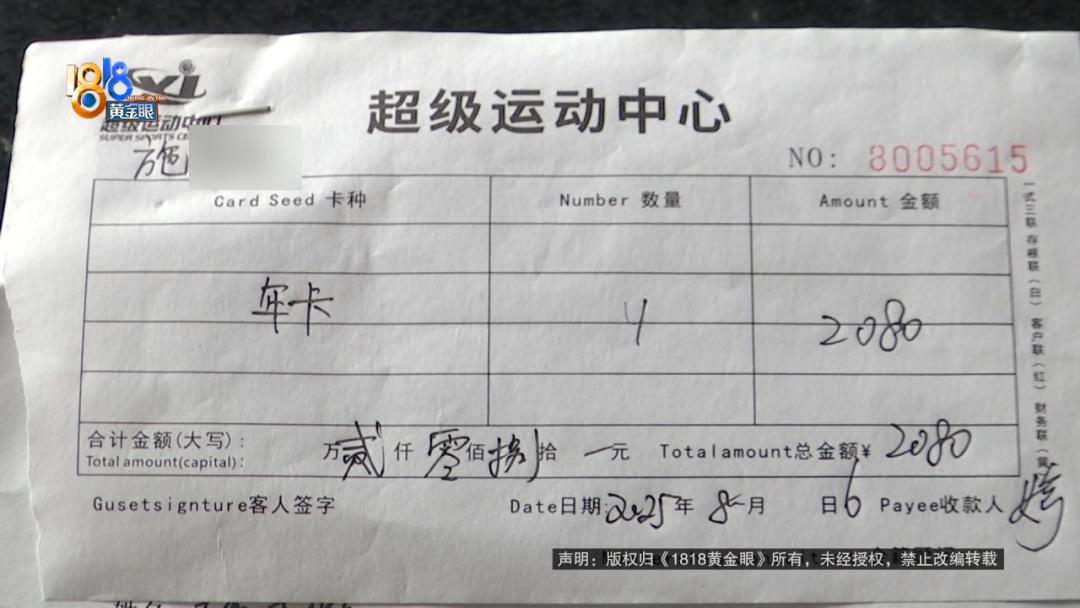 1818
黄金眼
超级运动中心
SUPER SPORTS CE
超级运动中心
施
NO: 8005615
Card Seed 卡种 Number 数量 Amount 金额
年卡 1 2080
合计金额(大写): 万贰仟零佰捌拾一元 Totalamount总金额¥ 2080
Total amount(capital):
Gusetsignture客人签字 Date日期:2025年 8 月 日6 Payee收款人
一式三联 存根联(白) 客户联(红) 财务联(黄
声明:版权归《1818黄金眼》所有,未经授权,禁止改编转载